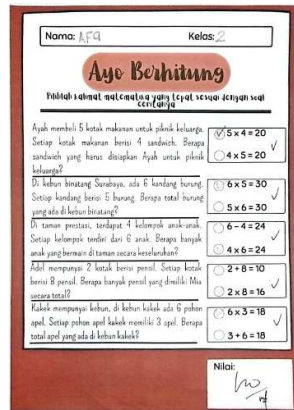 Nama: AFA Kelas: 2
Ayo Berhitung
Pilihlah kalimat matematika yang tepat sesuai dengan soal
ceritanya
Ayah membeli 5 kotak makanan untuk piknik keluarga.
Setiap kotak makanan berisi 4 sandwich. Berapa
sandwich yang harus disiapkan Ayah untuk piknik
keluarga?
5 x 4 = 20
4 x 5 = 20
Di kebun binatang Surabaya, ada 6 kandang burung.
Setiap kandang berisi 5 burung. Berapa total burung
yang ada di kebun binatang?
6 x 5 = 30
5 x 6 = 30
Di taman prestasi, terdapat 4 kelompok anak-anak.
Setiap kelompok terdiri dari 6 anak. Berapa banyak
anak yang bermain di taman secara keseluruhan?
6 - 4 = 24
4 x 6 = 24
Adel mempunyai 2 kotak berisi pensil. Setiap kotak
berisi 8 pensil. Berapa banyak pensil yang dimiliki Mia
secara total?
2 + 8 = 10
2 x 8 = 16
Kakek mempunyai kebun, di kebun kakek ada 6 pohon
apel. Setiap pohon apel kakek memiliki 3 apel. Berapa
total apel yang ada di kebun kakek?
6 x 3 = 18
3 + 6 = 18
Nilai: